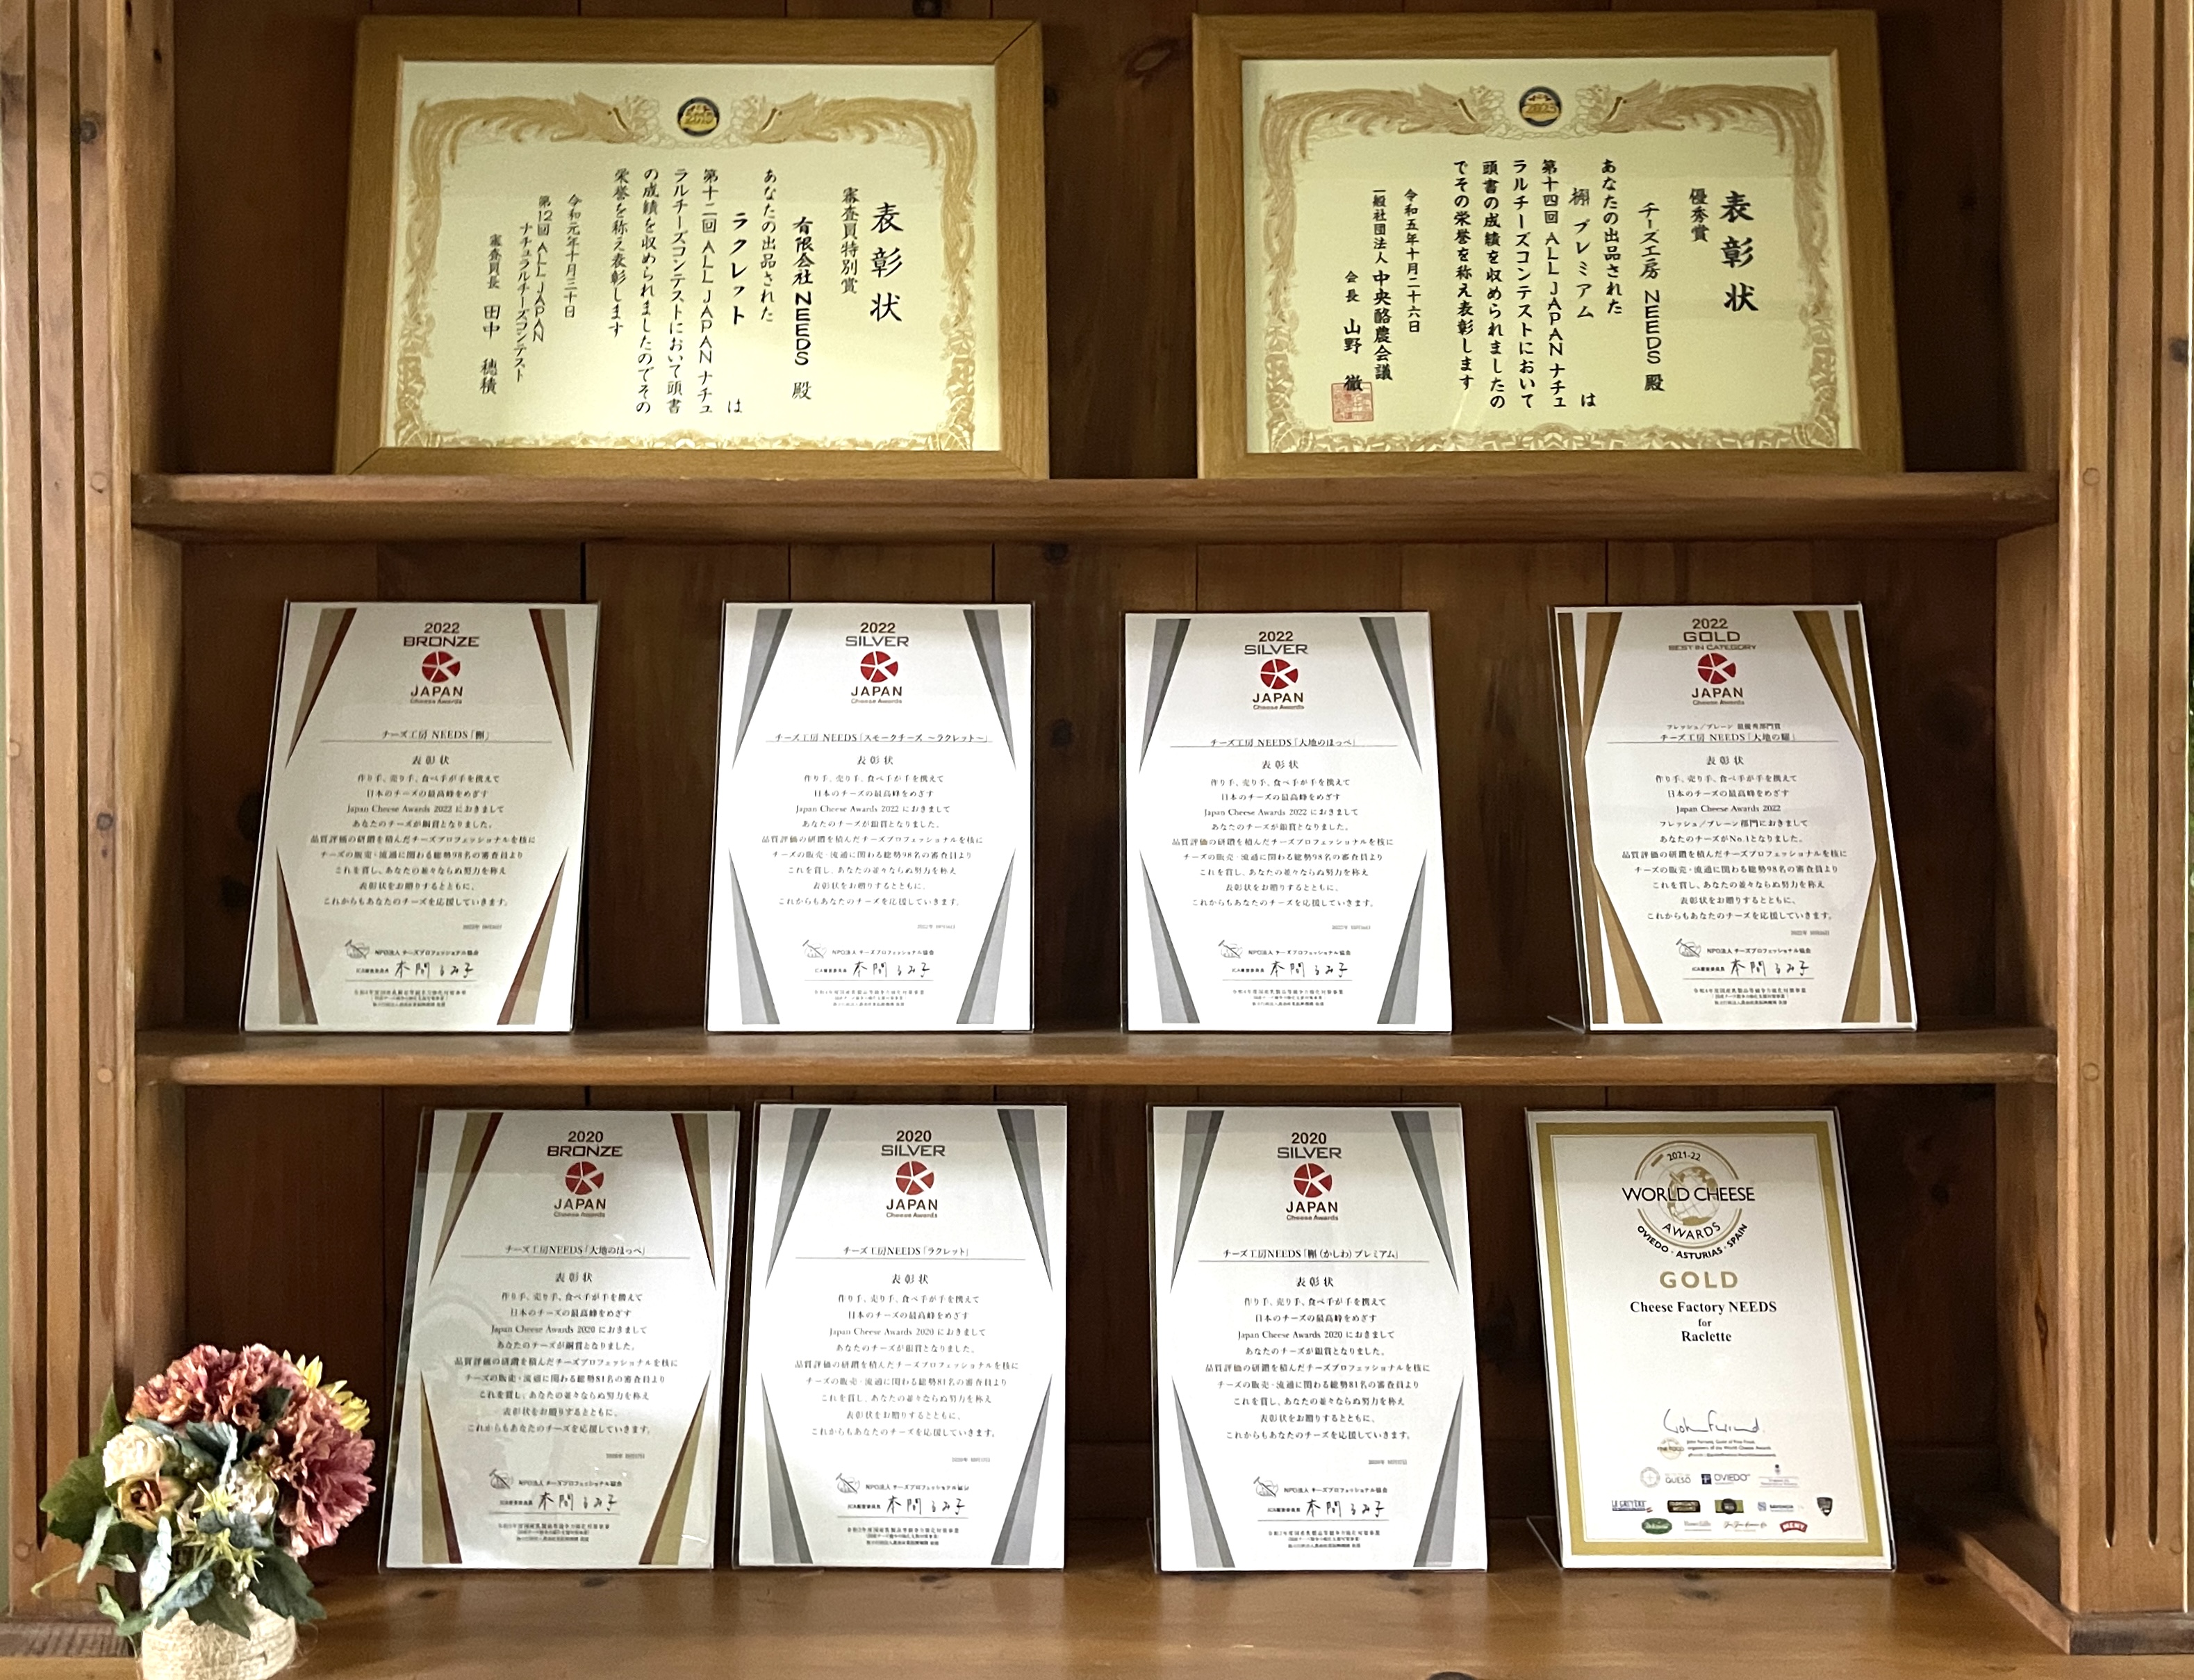 表彰状
審査員特別賞
有限会社 NEEDS 殿
あなたの出品された
ラクレット は
第十二回 ALL JAPAN ナチュ
ラルチーズコンテストにおいて頭書
の成績を収められましたのでその
栄誉を称え表彰します
令和元年十月三十日
第12回 ALL JAPAN
ナチュラルチーズコンテスト
審査員長 田中 穂積
表彰状
優秀賞
チーズ工房 NEEDS 殿
あなたの出品された
槲 プレミアム は
第十四回 ALL JAPAN ナチュ
ラルチーズコンテストにおいて
頭書の成績を収められましたの
でその栄誉を称え表彰します
令和五年十月二十六日
一般社団法人 中央酪農会議
会長 山野 徹
2022
BRONZE
JAPAN
Cheese Awards
チーズ工房 NEEDS「槲」
表彰状
作り手、売り手、食べ手が手を携えて
日本のチーズの最高峰をめざす
Japan Cheese Awards 2022 におきまして
あなたのチーズが銅賞となりました。
品質評価の研鑽を積んだチーズプロフェッショナルを核に
チーズの販売・流通に関わる総勢98名の審査員より
これを賞し、あなたの並々ならぬ努力を称え
表彰状をお贈りするとともに、
これからもあなたのチーズを応援していきます。
NPO法人 チーズプロフェッショナル協会
本間るみ子
2022
SILVER
JAPAN
Cheese Awards
チーズ工房 NEEDS「スモークチーズ ～ラクレット～」
表彰状
作り手、売り手、食べ手が手を携えて
日本のチーズの最高峰をめざす
Japan Cheese Awards 2022 におきまして
あなたのチーズが銀賞となりました。
品質評価の研鑽を積んだチーズプロフェッショナルを核に
チーズの販売・流通に関わる総勢98名の審査員より
これを賞し、あなたの並々ならぬ努力を称え
表彰状をお贈りするとともに、
これからもあなたのチーズを応援していきます。
NPO法人 チーズプロフェッショナル協会
本間るみ子
2022
SILVER
JAPAN
Cheese Awards
チーズ工房 NEEDS「大地のほっぺ」
表彰状
作り手、売り手、食べ手が手を携えて
日本のチーズの最高峰をめざす
Japan Cheese Awards 2022 におきまして
あなたのチーズが銀賞となりました。
品質評価の研鑽を積んだチーズプロフェッショナルを核に
チーズの販売・流通に関わる総勢98名の審査員より
これを賞し、あなたの並々ならぬ努力を称え
表彰状をお贈りするとともに、
これからもあなたのチーズを応援していきます。
NPO法人 チーズプロフェッショナル協会
本間るみ子
2022
GOLD
BEST IN CATEGORY
JAPAN
Cheese Awards
フレッシュ／プレーン 最優秀部門賞
チーズ工房 NEEDS「大地の
表彰状
作り手、売り手、食べ手が手を携えて
日本のチーズの最高峰をめざす
Japan Cheese Awards 2022
フレッシュ／プレーン部門におきまして
あなたのチーズがNo.1となりました。
品質評価の研鑽を積んだチーズプロフェッショナルを核に
チーズの販売・流通に関わる総勢98名の審査員より
これを賞し、あなたの並々ならぬ努力を称え
表彰状をお贈りするとともに、
これからもあなたのチーズを応援していきます。
NPO法人 チーズプロフェッショナル協会
本間るみ子
2020
BRONZE
JAPAN
Cheese Awards
チーズ工房NEEDS「大地のほっぺ」
表彰状
作り手、売り手、食べ手が手を携えて
日本のチーズの最高峰をめざす
Japan Cheese Awards 2020 におきまして
あなたのチーズが銅賞となりました。
品質評価の研鑽を積んだチーズプロフェッショナルを核に
チーズの販売・流通に関わる総勢81名の審査員より
これを賞し、あなたの並々ならぬ努力を称え
表彰状をお贈りするとともに、
これからもあなたのチーズを応援していきます。
NPO法人 チーズプロフェッショナル協会
本間るみ子
2020
SILVER
JAPAN
Cheese Awards
チーズ工房NEEDS「ラクレット」
表彰状
作り手、売り手、食べ手が手を携えて
日本のチーズの最高峰をめざす
Japan Cheese Awards 2020 におきまして
あなたのチーズが銀賞となりました。
品質評価の研鑽を積んだチーズプロフェッショナルを核に
チーズの販売・流通に関わる総勢81名の審査員より
これを賞し、あなたの並々ならぬ努力を称え
表彰状をお贈りするとともに、
これからもあなたのチーズを応援していきます。
NPO法人 チーズプロフェッショナル協会
本間るみ子
2020
SILVER
JAPAN
Cheese Awards
チーズ工房NEEDS「槲（かしわ）プレミアム」
表彰状
作り手、売り手、食べ手が手を携えて
日本のチーズの最高峰をめざす
Japan Cheese Awards 2020 におきまして
あなたのチーズが銀賞となりました。
品質評価の研鑽を積んだチーズプロフェッショナルを核に
チーズの販売・流通に関わる総勢81名の審査員より
これを賞し、あなたの並々ならぬ努力を称え
表彰状をお贈りするとともに、
これからもあなたのチーズを応援していきます。
NPO法人 チーズプロフェッショナル協会
本間るみ子
2021-22
WORLD CHEESE
AWARDS
OVIEDO · ASTURIAS · SPAIN
GOLD
Cheese Factory NEEDS
for
Raclette
John Farrand, Guild of Fine Food,
organisers of the World Cheese Awards
QUESO
OVIEDO